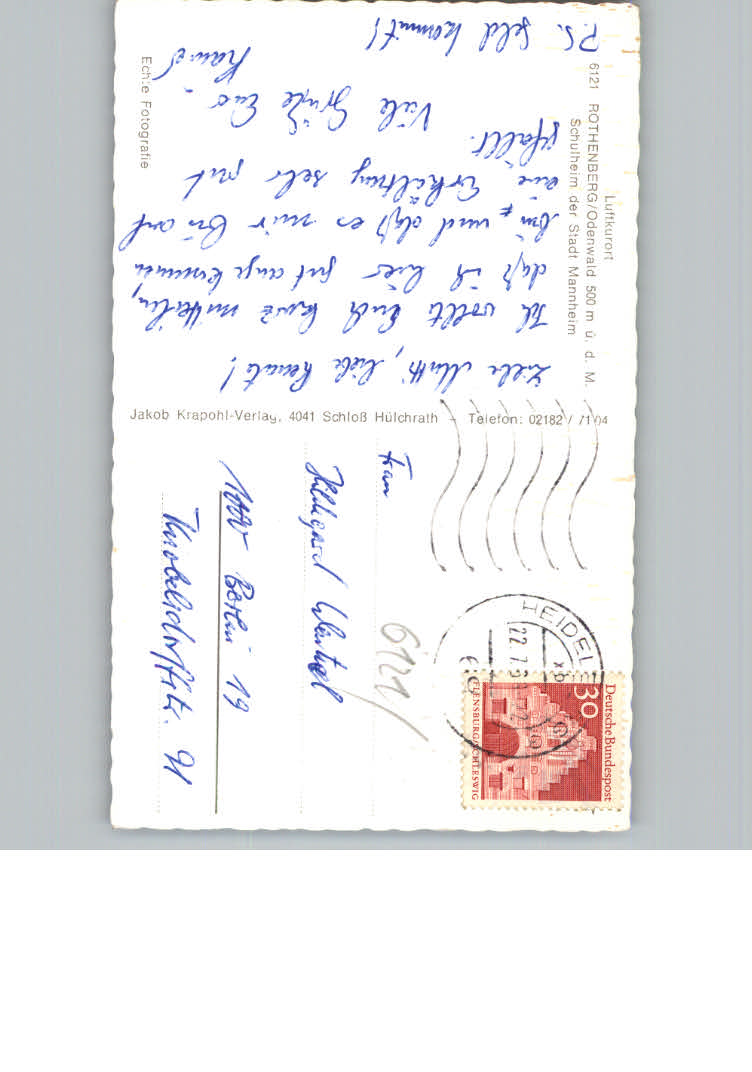 Luftkurort
6121 ROTHENBERG/Odenwald 500 m ü. d. M.
Schulheim der Stadt Mannheim
Liebe Mutti, liebe Renate!
Ich wollte Euch kurz mitteilen,
daß ich hier gut angekommen
bin und daß es mir bis auf
eine Erkältung sehr gut
gefällt.
Viele Grüße Euer
P.S. Geld kommt!
Echte Fotografie
Jakob Krapohl-Verlag, 4041 Schloß Hülchrath - Telefon: 02182 / 7104
Frau
Hildegard
1000 Berlin 19
Knobelsdorffstr. 91
6121/
HEIDEL
22.7.6
Deutsche Bundespost
30
FLENSBURG/SCHLESWIG